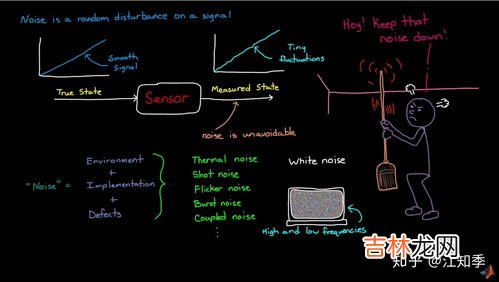 Noise is a random disturbance on a signal
Smooth
signal
Tiny
fluctuations
Hey! Keep that
noise down!
True State
Sensor
Measured State
noise is unavoidable
"Noise" =
Environment
+
Implementation
+
Defects
Thermal noise
Shot noise
Flicker noise
Burst noise
Coupled noise
⋮
White noise
High and low frequencies
吉林龙网
知乎 @江知季